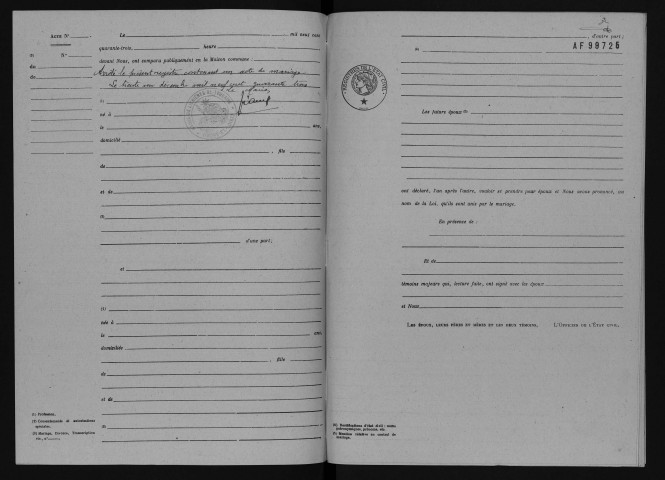 ACTE N°
Le mil neuf cent
quarante-trois, heure
N°
devant Nous, ont comparu publiquement en la Maison commune :
du
de
Arrêté le présent registre contenant un acte de mariage
Le trente un décembre mil neuf cent quarante trois
Le Maire,
né à
le ans,
domicilié
, fils
de
et de
d'une part;
et
née à
le ans
domiciliée
, fille
de
et de
(1) Profession.
(3) Mariage, Divorce, Transcription
d'autre part;
AF 99725
RÉPUBLIQUE FRANÇAISE
Les futurs époux
ont déclaré, l'un après l'autre, vouloir se prendre pour époux et Nous avons prononcé, au
nom de la Loi, qu'ils sont unis par le mariage.
En présence de :
Et de
témoins majeurs qui, lecture faite, ont signé avec les époux
et Nous
LES ÉPOUX, LEURS PÈRES ET MÈRES ET LES DEUX TÉMOINS, L'OFFICIER DE L'ÉTAT CIVIL,
(4) Rectifications d'état civil : noms,
orthographiques, prénoms, etc.
(5) Mention relative au contrat de
mariage.